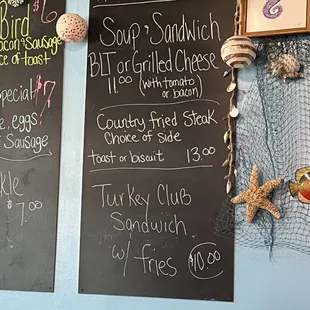 Bird
acon & Sausage
ce of toast
$6
Special
$7
e, eggs,
Sausage
kle
$7.00
Soup & Sandwich
BLT or Grilled Cheese
11.00 (with tomato
or bacon)
Country fried Steak
Choice of side
toast or biscuit 13.00
Turkey Club
Sandwich
w/ fries $10.00